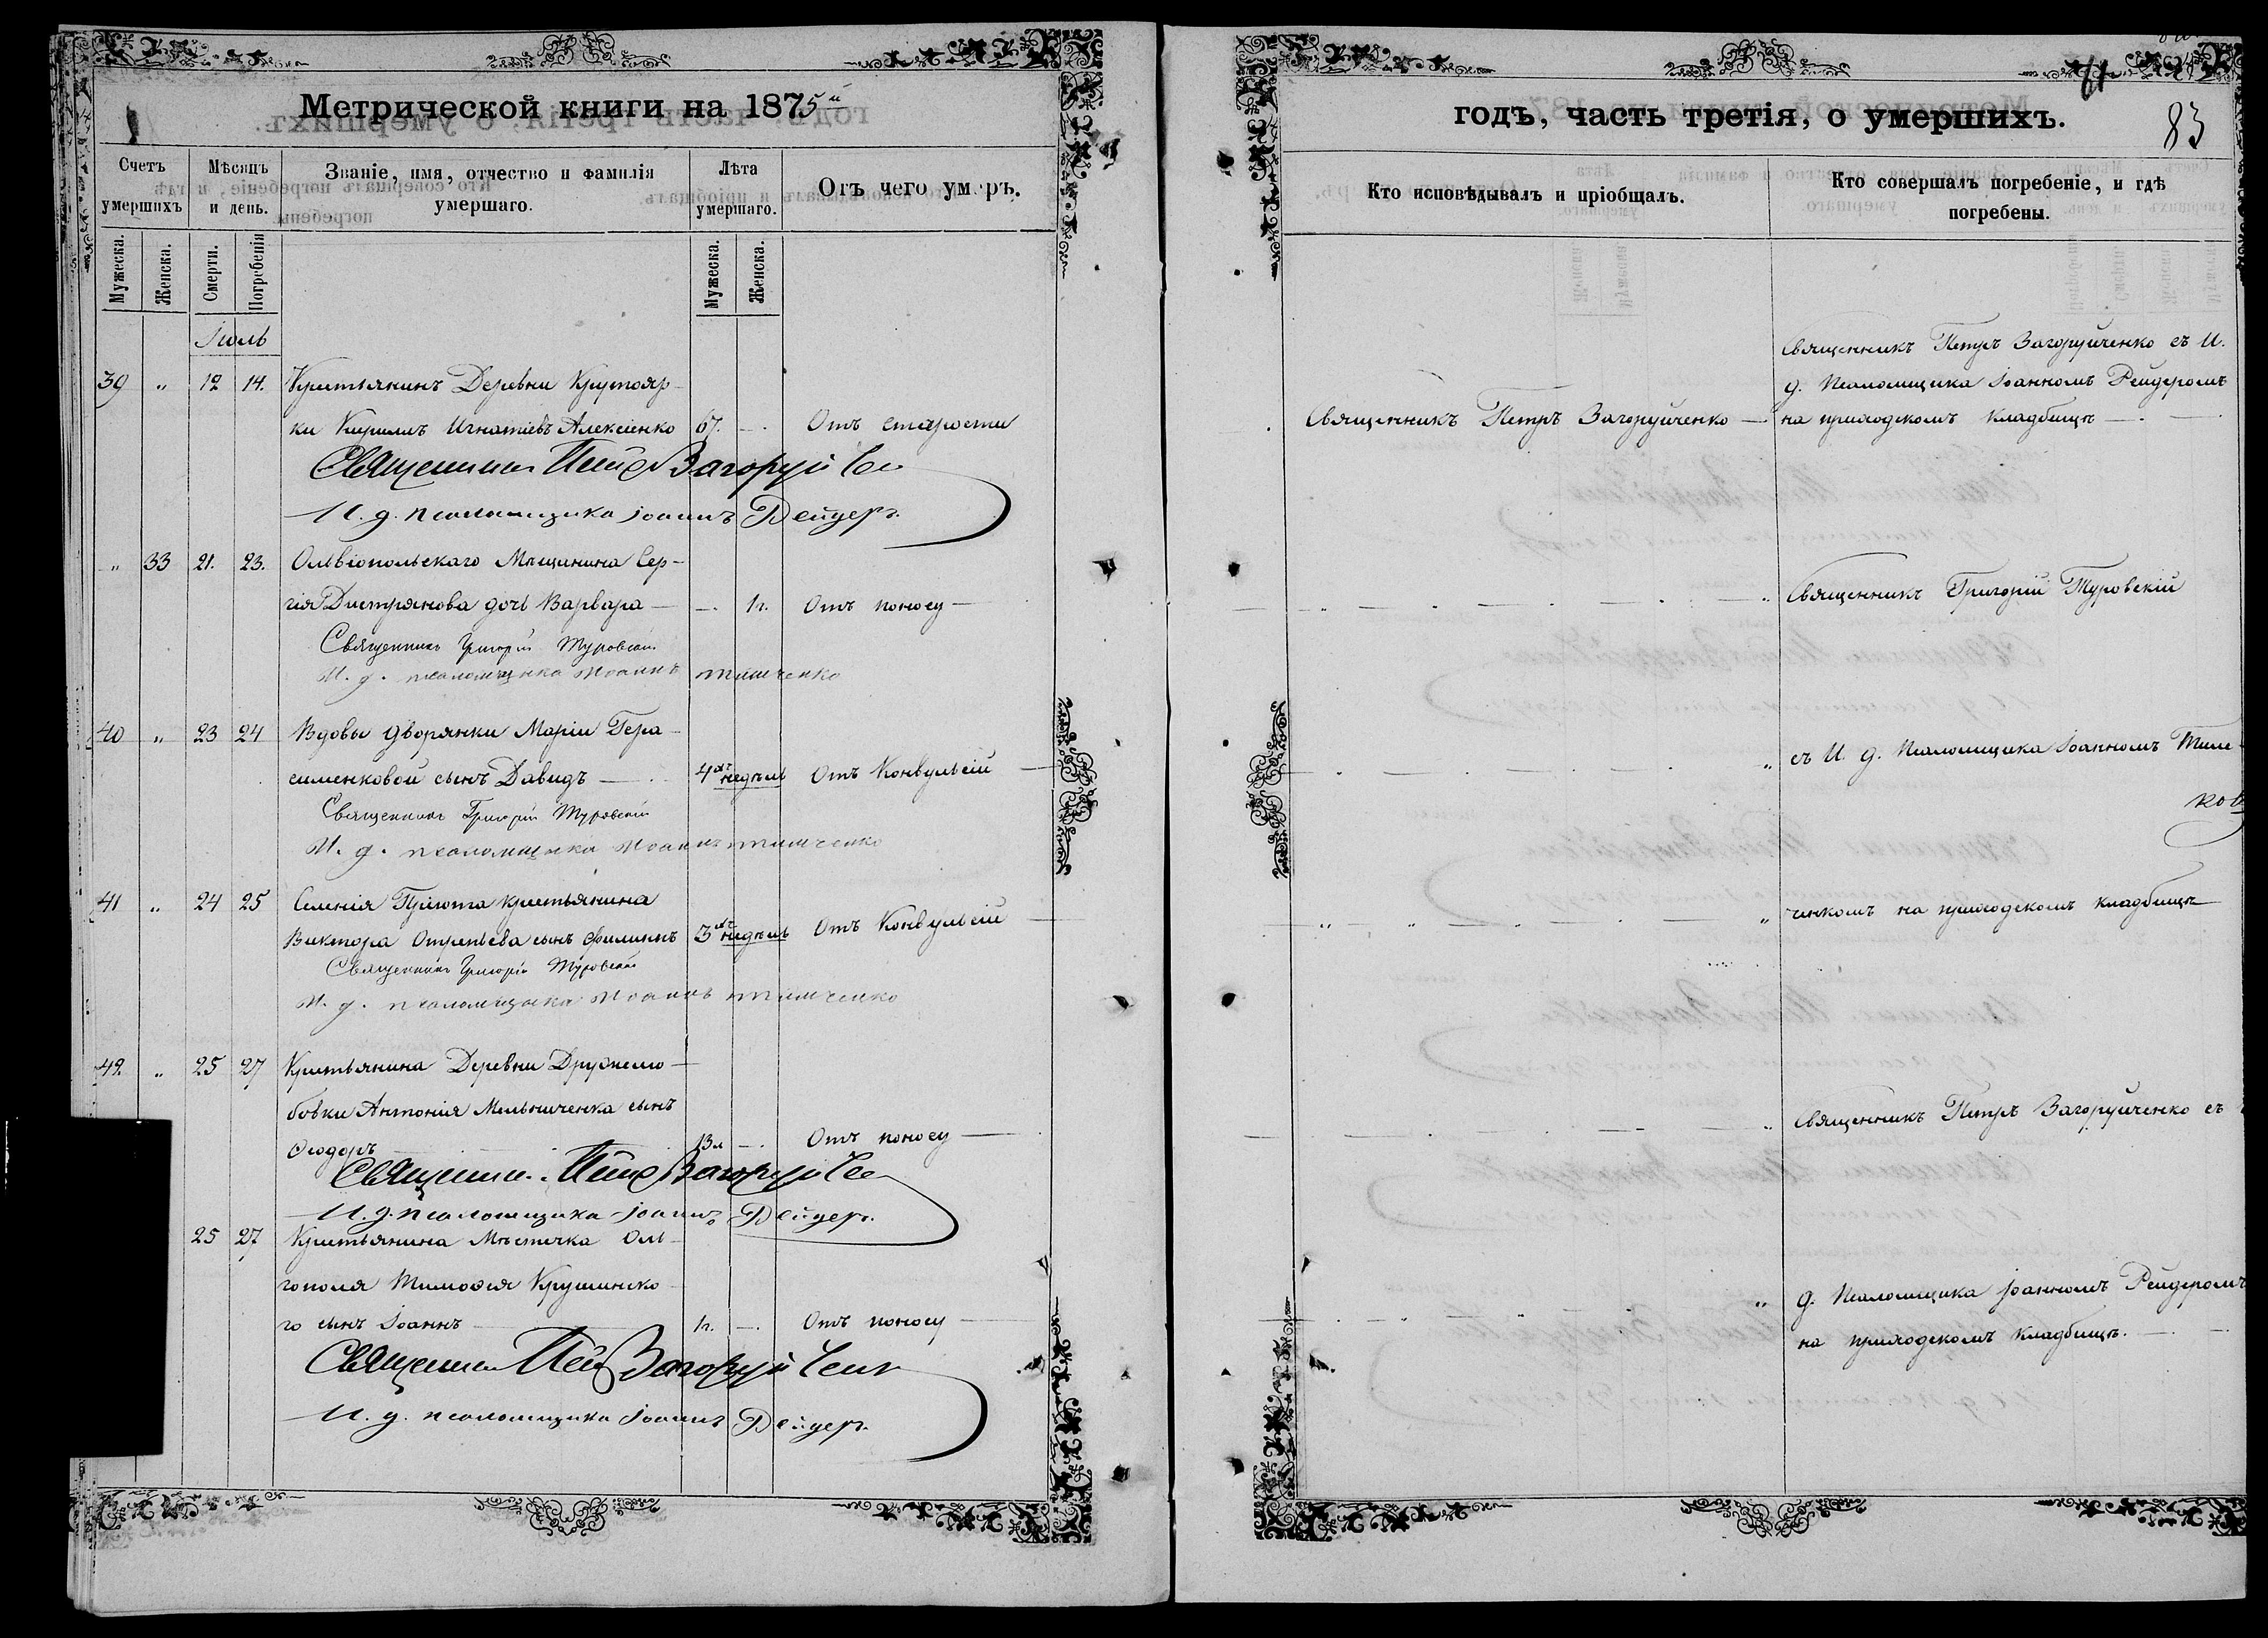 Метрической книги на 1875й
Счетъ умершихъ
Мѣсяцъ и день.
Званіе, имя, отчество и фамилія умершаго.
Лѣта умершаго.
Отъ чего умеръ.
Мужеска.
Женска.
Смерти.
Погребенія
Мужеска.
Женска.
Іюль
39 " 12 14. Крестьянинъ Деревни Крутояр-
ки Кириллъ Игнатіевъ Алексіенко 67. — Отъ старости
Священникъ Петръ Загоруйчен
И. д. псаломщика Іоаннъ Рейдеръ.
" 33 21. 23. Ольвіопольскаго Мѣщанина Сер-
гія Дистрянова дочь Варвара — —. 1г. Отъ поносу —
Священникъ Григорій Туровскій
И. д. псаломщика Иоаннъ тимченко
40 " 23 24 Вдовы дворянки Маріи Гера-
сименковой сынъ Давидъ — 4хъ недѣль Отъ Конвульсій —
Священникъ Григорій Туровскій
И. д. псаломщика Иоаннъ тимченко
41 " 24 25 Селенія Пріюта крестьянина
Виктора Отрепьева сынъ Филиппъ 3хъ недѣль Отъ Конвульсій —
Священникъ Григорій Туровскій
И. д. псаломщика Иоаннъ тимченко
42. " 25 27 Крестьянина Деревни Дружелю-
бовки Антонія Мельниченка сынъ
Ѳеодоръ 13л — Отъ поносу —
Священникъ Петръ Загоруйче
И. д. псаломщика Іоаннъ Рейдеръ.
25 27 Крестьянина Мѣстечка Оль-
гополя Тимоѳея Крушинско-
го сынъ Іоаннъ — 1г. —. Отъ поносу —
Священникъ Петръ Загоруйченк
И. д. псаломщика Іоаннъ Рейдеръ.
годъ, часть третія, о умершихъ.
83
Кто исповѣдывалъ и пріобщалъ.
Кто совершалъ погребеніе, и гдѣ погребены.
Священникъ Петръ Загоруйченко съ И.
д. Псаломщика Іоанномъ Рейдеромъ
Священникъ Петръ Загоруйченко — на приходскомъ кладбищѣ —
" Священникъ Григорій Туровскій
" съ И. д. Псаломщика Іоанномъ Тим-
" ченкомъ на приходскомъ кладбищѣ
" Священникъ Петръ Загоруйченко съ
" д. Псаломщика Іоанномъ Рейдеромъ
на приходскомъ кладбищѣ. —